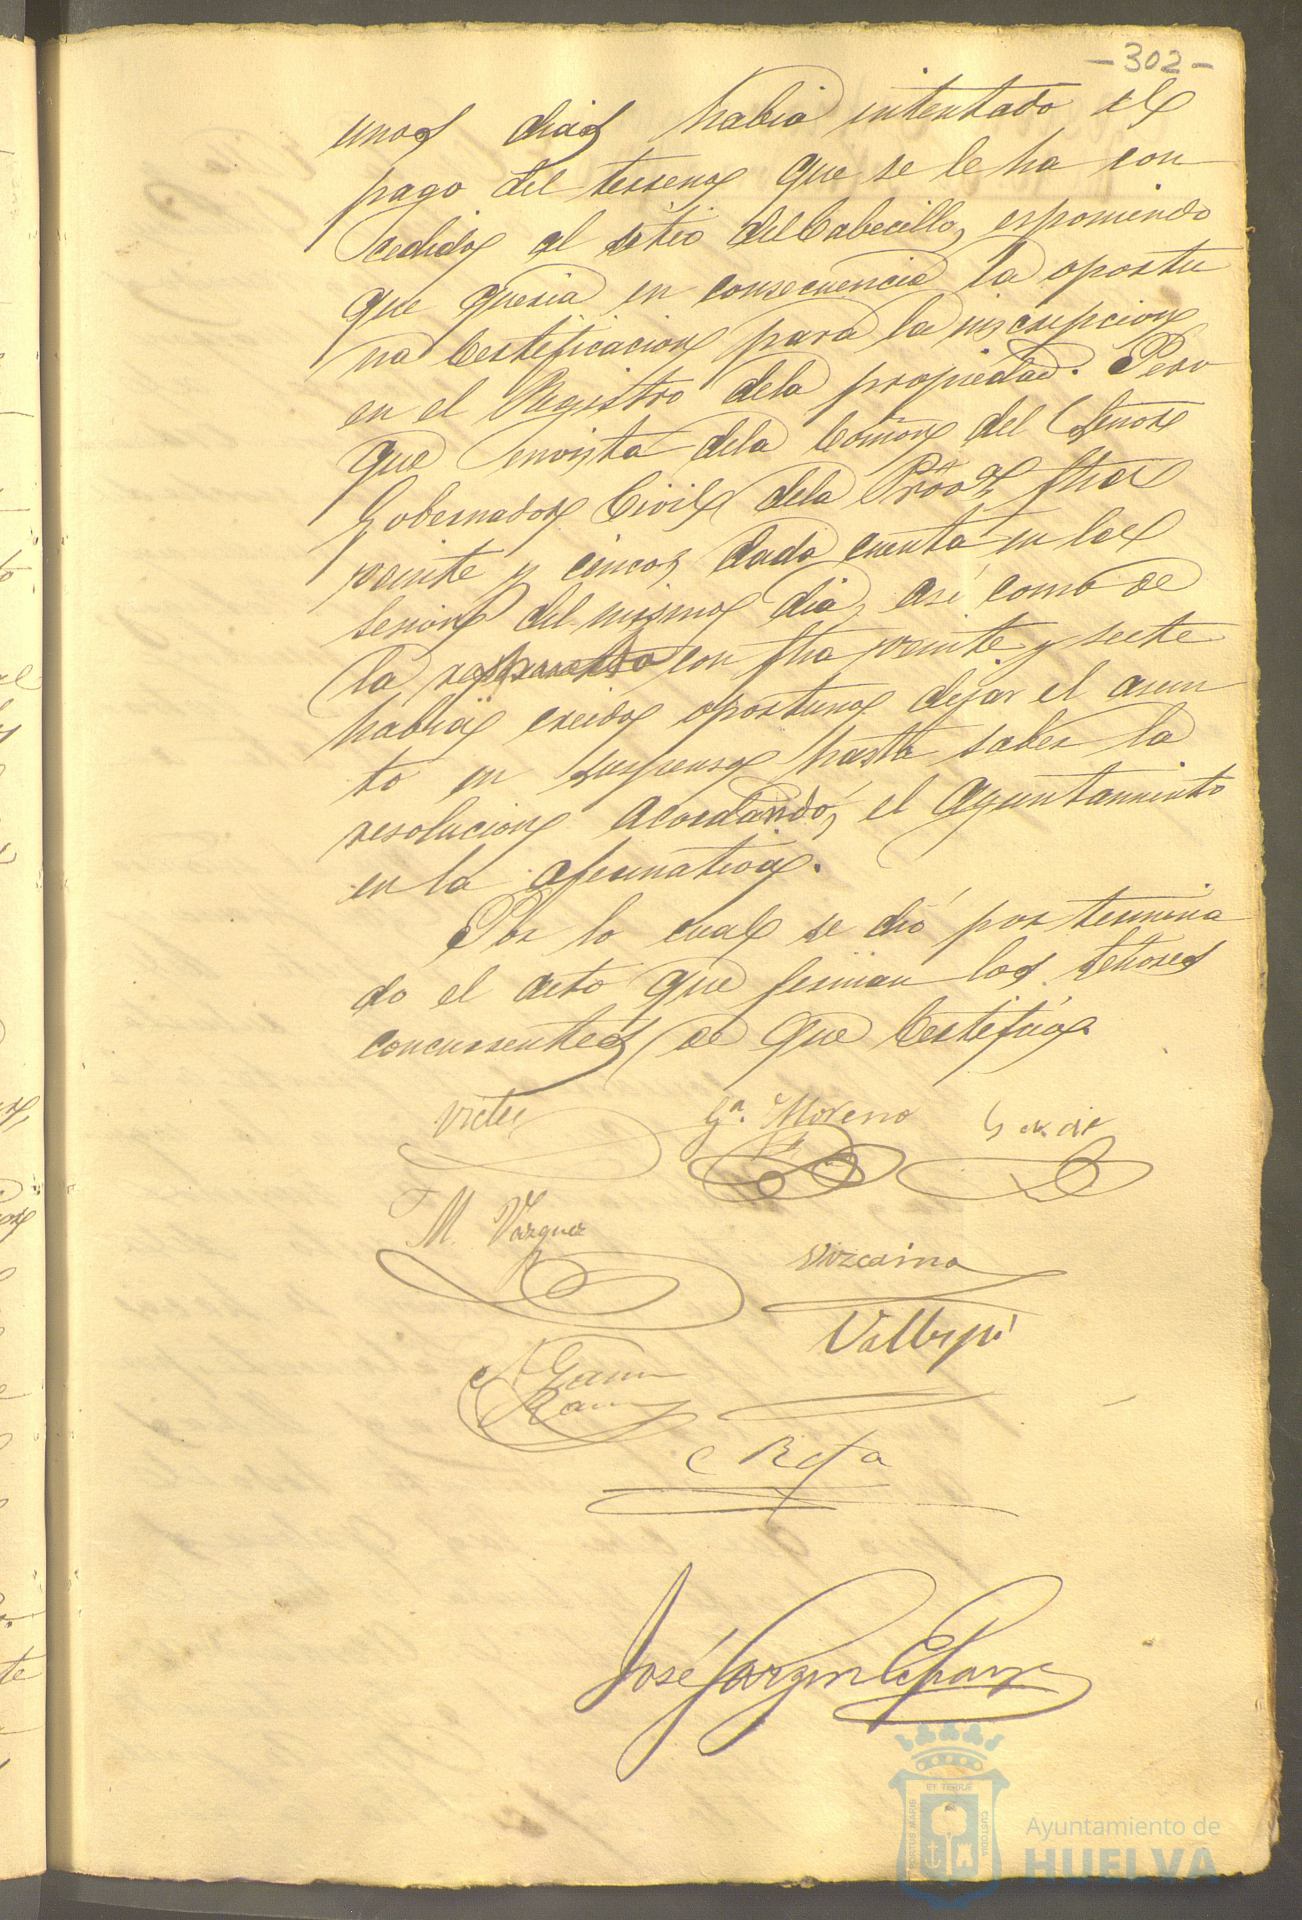 -302-
unos dias habia intentado el
pago del terreno que se le ha con
cedido al sitio del Cabecillo, esponiendo
que queria en consecuencia la oportu
na Certificacion para la inscripcion
en el Registro dela propiedad. Pero
que en vista dela Comon del Señor
Gobernador Civil dela Proa fha
veinte y cinco, dada cuenta en la
sesion del mismo dia, asi como de
la con fha veinte y siete
habia creido oportuno dejar el asun
to en suspenso hasta saber la
resolucion acordando, el Ayuntamiento
en la afirmativa.
Por lo cual se dió por termina
do el acto que firman los Señores
concurrentes, de que Certifico.
Ga. Moreno
M. Vazquez
Vizcaino
José
ET TERRÆ
PORTUS MARIS
CUSTODIA
Ayuntamiento de
HUELVA